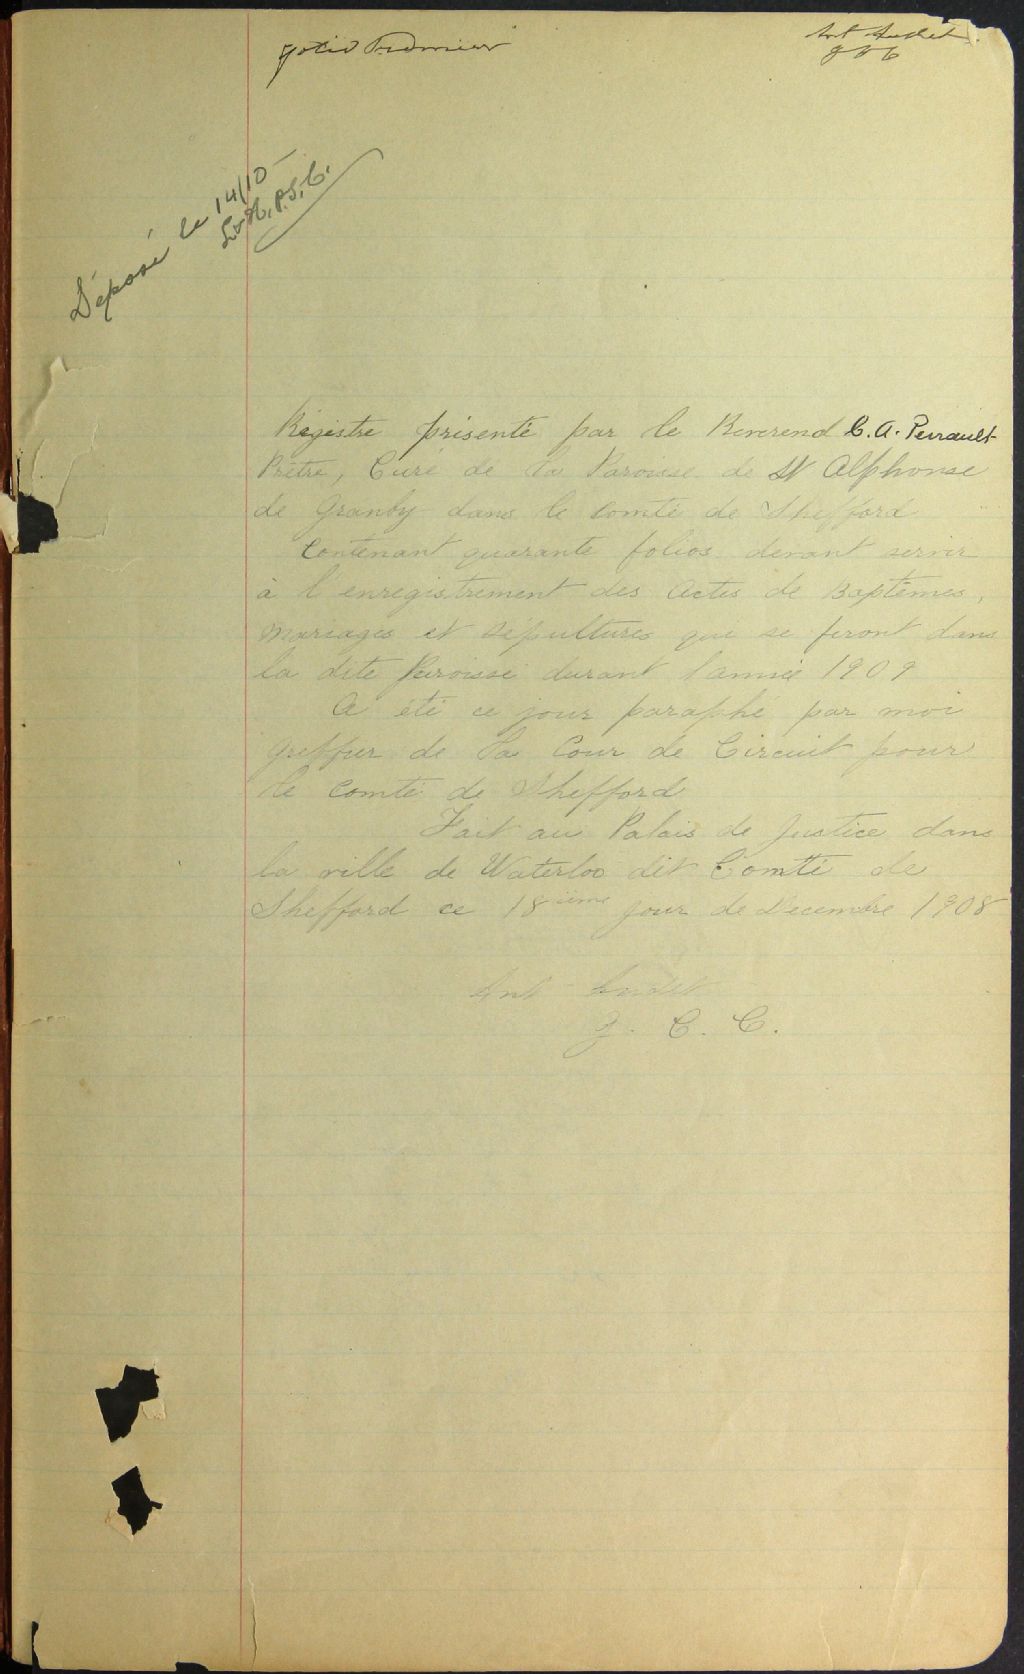 folio Premier
Ant Audet
Déposé le 14/10
P.S.C.
Régistre présenté par le Reverend C. A. Perrault
Prêtre, Curé de la Paroisse de St Alphonse
de Granby dans le Comté de Shefford
Contenant quarante folios devant servir
à l'enregistrement des Actes de Baptêmes,
Mariages et sépultures qui se feront dans
la dite Paroisse durant l'année 1909
A été ce jour paraphé par moi
Greffier de la Cour de Circuit pour
le Comté de Shefford
Fait au Palais de Justice dans
la ville de Waterloo dit Comté de
Shefford ce 18ième jour de Decembre 1908
Ant Audet
G. C. C.